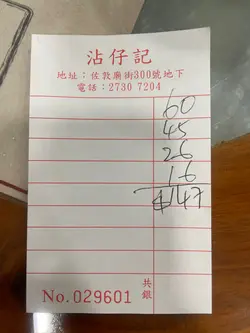 沾仔記
地址：佐敦廟街300號地下
電話：2730 7204
60
45
26
16
$147
No.029601
共銀